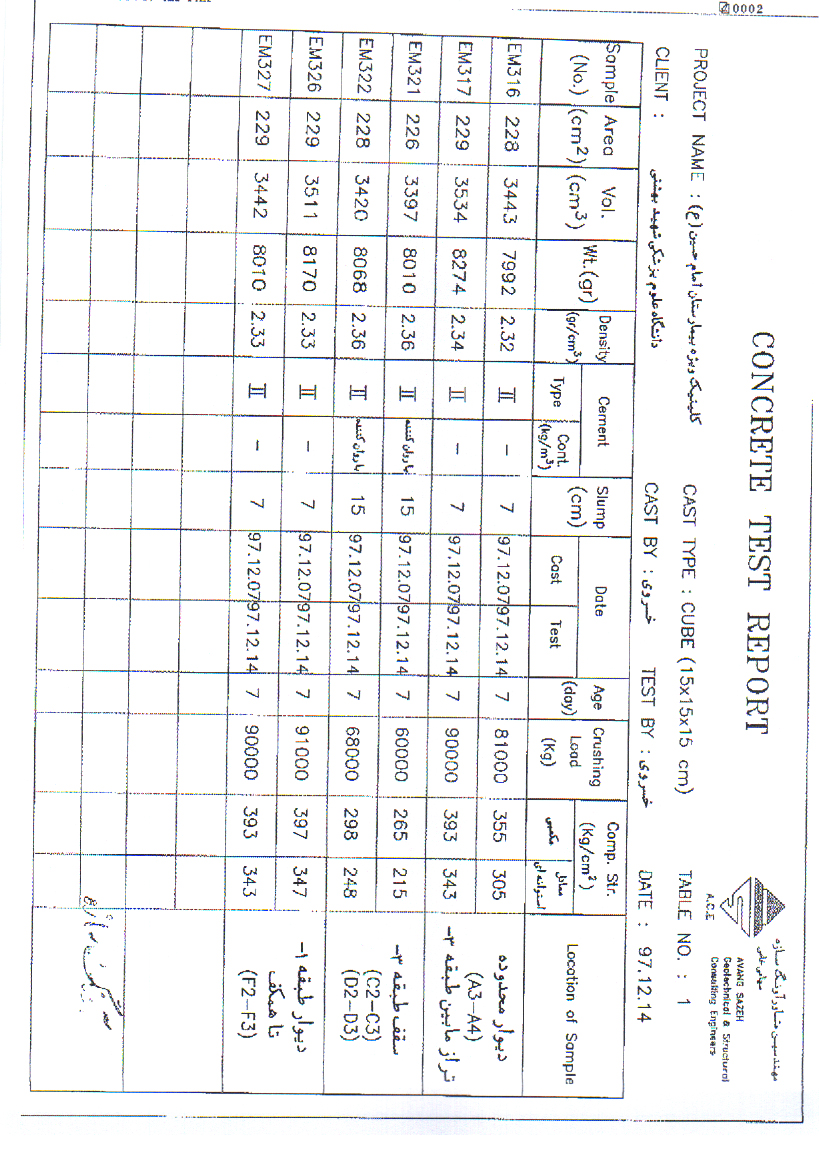 0002
CONCRETE TEST REPORT
مهندسین مشاور آونگ سازه
AVANG SAZEH
Geotechnical & Structural
Consulting Engineers
A.C.E
PROJECT NAME : کلینیک ویژه بیمارستان امام حسین (ع) CAST TYPE : CUBE (15x15x15 cm) TABLE NO. : 1
CLIENT : دانشگاه علوم پزشکی شهید بهشتی CAST BY : خسروی TEST BY : خسروی DATE : 97.12.14
Sample (No.) Area (cm2) Vol. (cm3) Wt.(gr) Density (gr/cm3) Cement Type Cont. (kg/m3) Slump (cm) Date Cast Test Age (day) Crushing Load (Kg) Comp. Str. (Kg/cm2) مکعبی معادل استوانه ای Location of Sample
EM316 228 3443 7992 2.32 II – 7 97.12.07 97.12.14 7 81000 355 305
EM317 229 3534 8274 2.34 II – 7 97.12.07 97.12.14 7 90000 393 343
دیوار محدوده
(A3–A4)
تراز مابین طبقه ۳-
EM321 226 3397 8010 2.36 II با روان کننده 15 97.12.07 97.12.14 7 60000 265 215
EM322 228 3420 8068 2.36 II با روان کننده 15 97.12.07 97.12.14 7 68000 298 248
سقف طبقه ۳-
(C2–C3)
(D2–D3)
EM326 229 3511 8170 2.33 II – 7 97.12.07 97.12.14 7 91000 397 347
EM327 229 3442 8010 2.33 II – 7 97.12.07 97.12.14 7 90000 393 343
دیوار طبقه ۱-
تا همکف
(F2–F3)